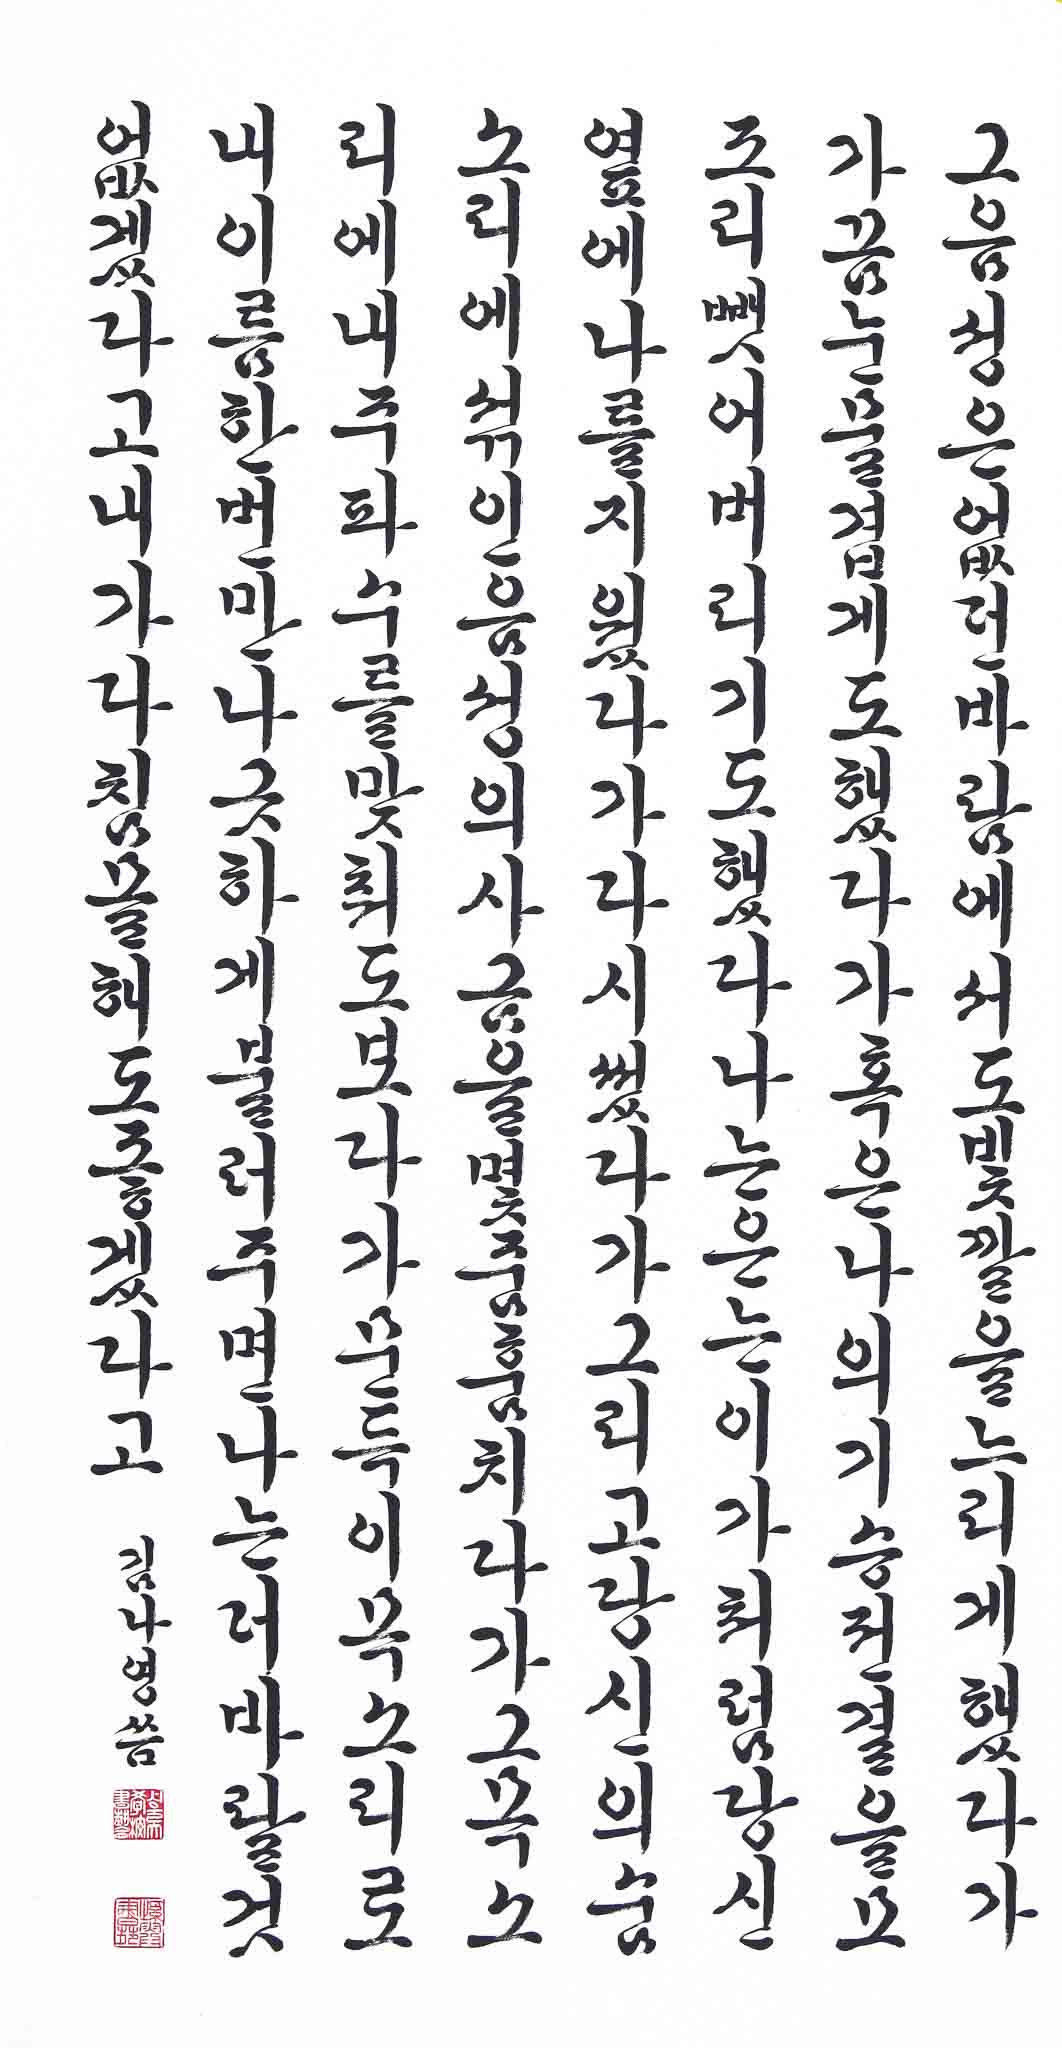 그음성은없던바람에서도빛깔을느리게했다가
가끔눈물겹게도했다가혹은나의기승전결을모
조리뺏어버리기도했다나는은는이가처럼당신
옆에나를지웠다가다시썼다가그리고당신의숨
소리에섞인음성의사금을몇줌훔치다가그목소
리에내주파수를맞춰도보다가문득이목소리로
내이름한번만나긋하게불러주면나는더바랄것
없겠다고내가다침몰해도좋겠다고
김나영씀